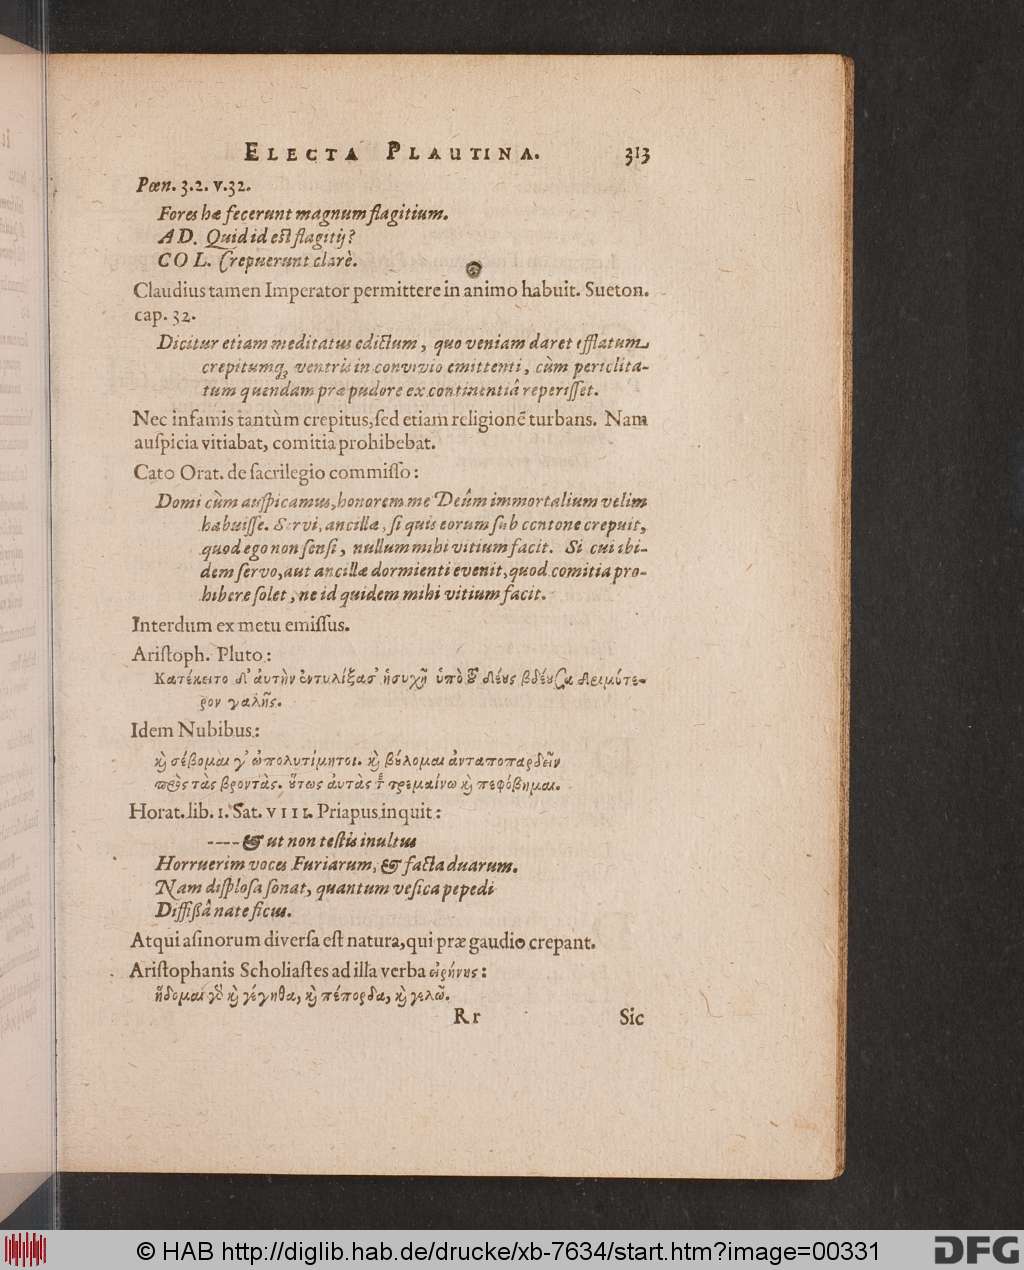 ELECTA PLAUTINA. 313
Pœn. 3.2. v.32.
Fores hæ fecerunt magnum flagitium.
AD. Quid id est flagitij?
COL. Crepuerunt clarè.
Claudius tamen Imperator permittere in animo habuit. Sueton.
cap. 32.
Dicitur etiam meditatus edictum, quo veniam daret efflatum
crepitumq; ventris in convivio emittenti, cùm periclita-
tum quendam præ pudore ex continentiâ reperisset.
Nec infamis tantùm crepitus, sed etiam religionē turbans. Nam
auspicia vitiabat, comitia prohibebat.
Cato Orat. de sacrilegio commisso:
Domi cùm auspicamus, honorem me Deûm immortalium velim
habuisse. Servi, ancillæ, si quis eorum sub centone crepuit,
quod ego non sensi, nullum mihi vitium facit. Si cui ibi-
dem servo, aut ancillæ dormienti evenit, quod comitia pro-
hibere solet, ne id quidem mihi vitium facit.
Interdum ex metu emissus.
Aristoph. Pluto:
Κατέκειτο δ’ ἀυτὴν ἐντυλίξασ’ ἡσυχῆ ὑπὸ τοῦ δέους βδέουσα δριμύτε-
ρον γαλῆς.
Idem Nubibus:
καὶ σέβομαι γ’ ὠπολυτίμητοι. καὶ βούλομαι ἀνταποπαρδεῖν
πρὸς τὰς βροντὰς. οὕτως ἀυτὰς τετρεμαίνω καὶ πεφόβημαι.
Horat. lib. 1. Sat. VIII. Priapus inquit:
---- & ut non testis inultus
Horruerim voces Furiarum, & facta duarum.
Nam displosa sonat, quantum vesica pepedi
Diffissâ nate ficus.
Atqui asinorum diversa est natura, qui præ gaudio crepant.
Aristophanis Scholiastes ad illa verba εἰρήνης:
ἥδομαι γὸ καὶ γέγηθα, καὶ πέπορδα, καὶ γελῶ.
Rr Sic
© HAB http://diglib.hab.de/drucke/xb-7634/start.htm?image=00331
DFG